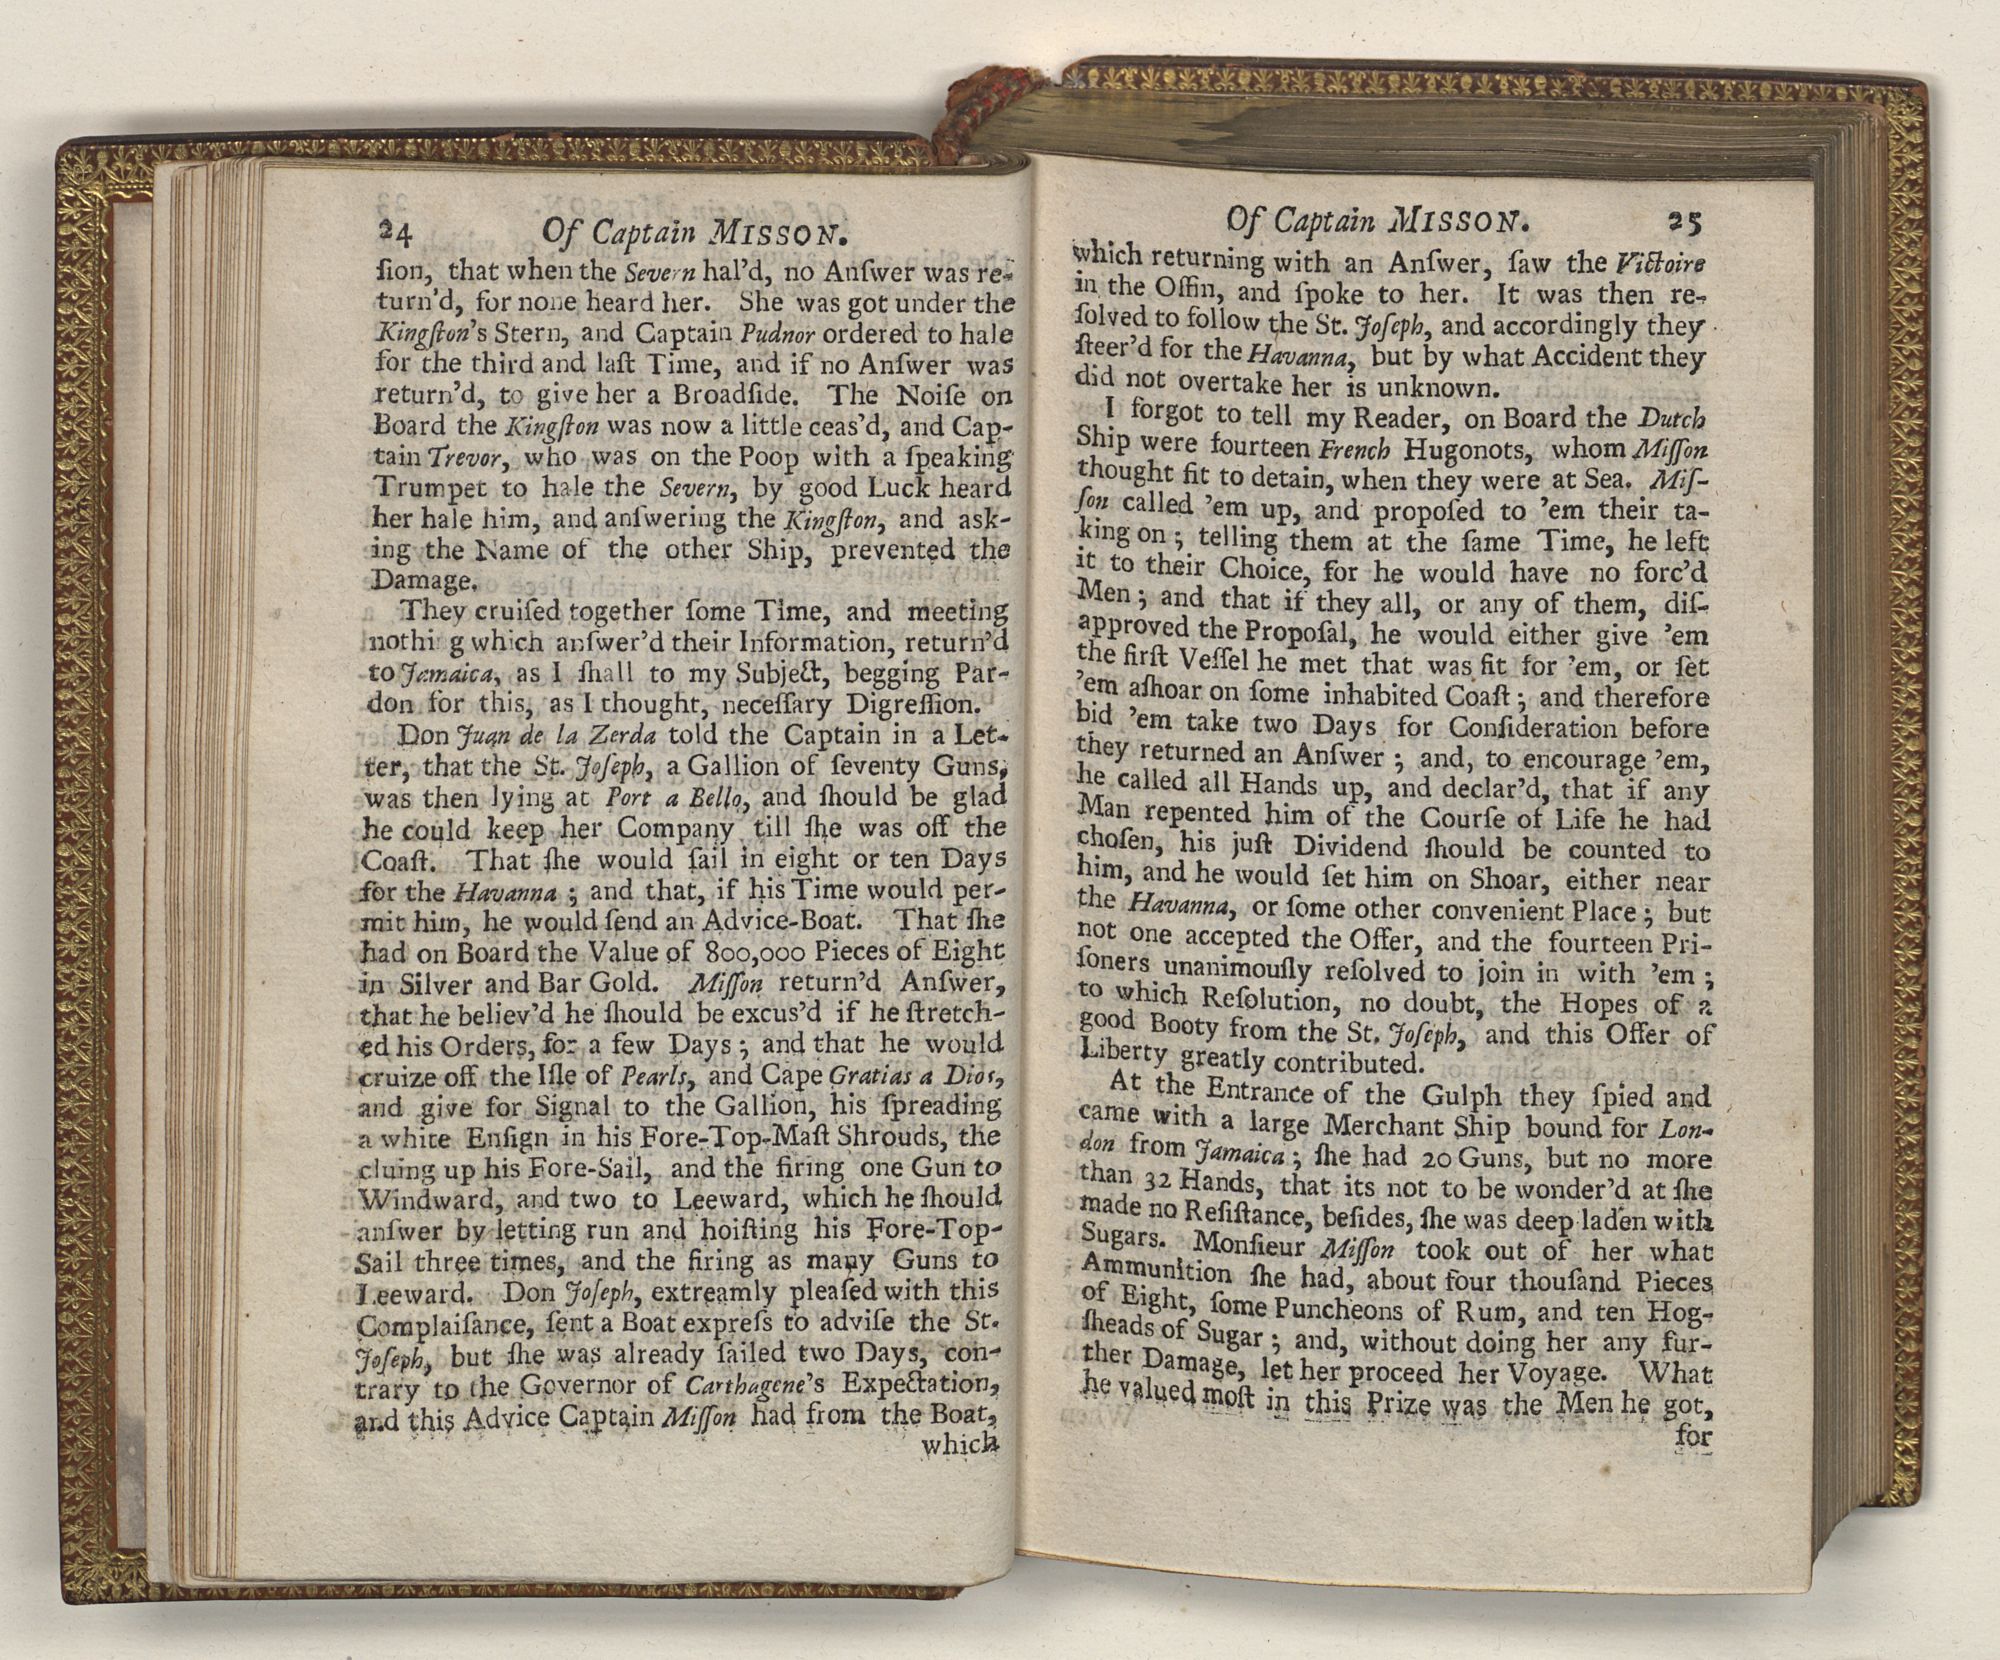 24 Of Captain MISSON.
ſion, that when the Severn hal'd, no Anſwer was re-
turn'd, for none heard her. She was got under the
Kingſton's Stern, and Captain Pudnor ordered to hale
for the third and laſt Time, and if no Anſwer was
return'd, to give her a Broadſide. The Noiſe on
Board the Kingſton was now a little ceas'd, and Cap-
tain Trevor, who was on the Poop with a ſpeaking
Trumpet to hale the Severn, by good Luck heard
her hale him, and anſwering the Kingſton, and ask-
ing the Name of the other Ship, prevented the
Damage.
They cruiſed together ſome Time, and meeting
nothi g which anſwer'd their Information, return'd
to Jamaica, as I ſhall to my Subject, begging Par-
don for this, as I thought, neceſſary Digreſſion.
Don Juan de la Zerda told the Captain in a Let-
ter, that the St. Joſeph, a Gallion of ſeventy Guns,
was then lying at Port a Bello, and ſhould be glad
he could keep her Company till ſhe was off the
Coaſt. That ſhe would ſail in eight or ten Days
for the Havanna; and that, if his Time would per-
mit him, he would ſend an Advice-Boat. That ſhe
had on Board the Value of 800,000 Pieces of Eight
in Silver and Bar Gold. Miſſon return'd Anſwer,
that he believ'd he ſhould be excus'd if he ſtretch-
ed his Orders, for a few Days; and that he would
cruize off the Iſle of Pearls, and Cape Gratias a Dios,
and give for Signal to the Gallion, his ſpreading
a white Enſign in his Fore-Top-Maſt Shrouds, the
cluing up his Fore-Sail, and the firing one Gun to
Windward, and two to Leeward, which he ſhould
anſwer by letting run and hoiſting his Fore-Top-
Sail three times, and the firing as many Guns to
Leeward. Don Joſeph, extreamly pleaſed with this
Complaiſance, ſent a Boat expreſs to adviſe the St.
Joſeph, but ſhe was already ſailed two Days, con-
trary to the Governor of Carthagene's Expectation,
and this Advice Captain Miſſon had from the Boat,
which
Of Captain MISSON. 25
which returning with an Anſwer, ſaw the Victoire
in the Offin, and ſpoke to her. It was then re-
ſolved to follow the St. Joſeph, and accordingly they
ſteer'd for the Havanna, but by what Accident they
did not overtake her is unknown.
I forgot to tell my Reader, on Board the Dutch
Ship were fourteen French Hugonots, whom Miſſon
thought fit to detain, when they were at Sea. Miſ-
ſon called 'em up, and propoſed to 'em their ta-
king on; telling them at the ſame Time, he left
it to their Choice, for he would have no forc'd
Men; and that if they all, or any of them, diſ-
approved the Propoſal, he would either give 'em
the firſt Veſſel he met that was fit for 'em, or ſet
'em aſhoar on ſome inhabited Coaſt; and therefore
bid 'em take two Days for Conſideration before
they returned an Anſwer; and, to encourage 'em,
he called all Hands up, and declar'd, that if any
Man repented him of the Courſe of Life he had
choſen, his juſt Dividend ſhould be counted to
him, and he would ſet him on Shoar, either near
the Havanna, or ſome other convenient Place; but
not one accepted the Offer, and the fourteen Pri-
ſoners unanimouſly reſolved to join in with 'em;
to which Reſolution, no doubt, the Hopes of a
good Booty from the St. Joſeph, and this Offer of
Liberty greatly contributed.
At the Entrance of the Gulph they ſpied and
came with a large Merchant Ship bound for Lon-
don from Jamaica; ſhe had 20 Guns, but no more
than 32 Hands, that its not to be wonder'd at ſhe
made no Reſiſtance, beſides, ſhe was deep laden with
Sugars. Monſieur Miſſon took out of her what
Ammunition ſhe had, about four thouſand Pieces
of Eight, ſome Puncheons of Rum, and ten Hog-
ſheads of Sugar; and, without doing her any fur-
ther Damage, let her proceed her Voyage. What
he valued moſt in this Prize was the Men he got,
for